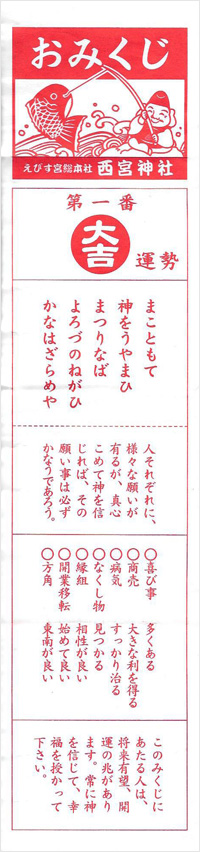 おみくじ
えびす宮総本社 西宮神社
第一番
大吉
運勢
まこともて
神をうやまひ
まつりなば
よろづのねがひ
かなはざらめや
人それぞれに、
様々な願いが
有るが、真心
こめて神を信
じれば、その
願い事は必ず
かなうであろう。
○喜び事 多くある
○商売 大きな利を得る
○病気 すっかり治る
○なくし物 見つかる
○縁組 相性が良い
○開業移転 始めて良い
○方角 東南が良い
このみくじに
あたる人は、
将来有望、開
運の兆があり
ます。常に神
を信じて、幸
福を授かって
下さい。